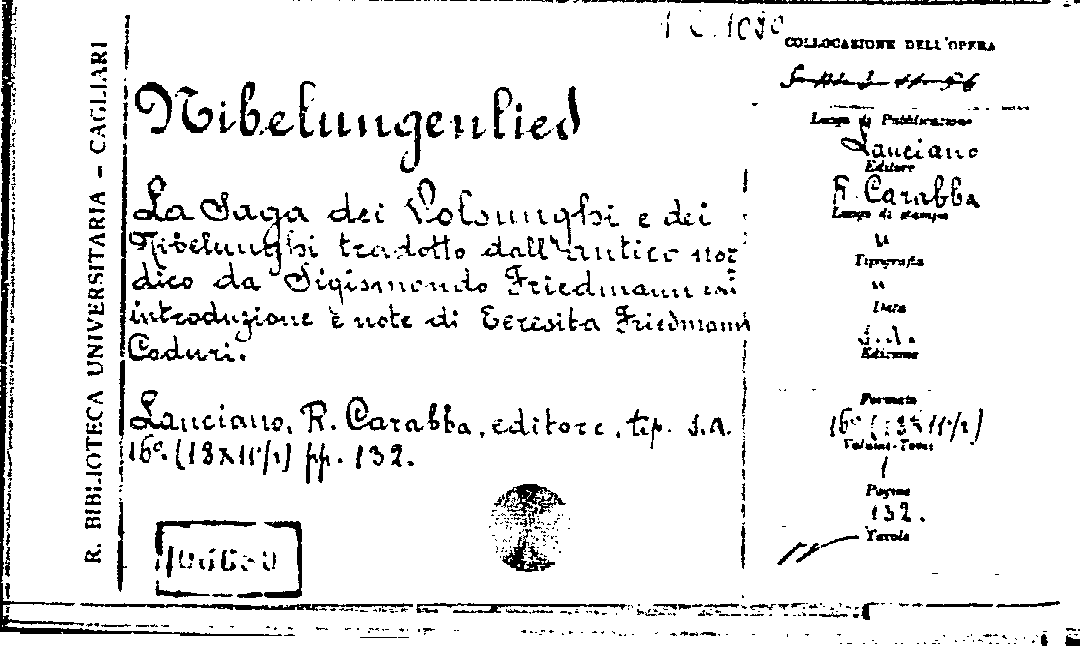 R. BIBLIOTECA UNIVERSITARIA - CAGLIARI
Nibelungenlied
La Saga dei Volsunghi e dei
Nibelunghi tradotto dall'antico nor
dico da Sigismondo Friedmann
introduzione e note di Teresita Friedmann
Coduri.
Lanciano, R. Carabba, editore, tip. s.a.
16º (18x11½) pp. 132.
COLLOCAZIONE DELL'OPERA
Luogo di Pubblicazione
Lanciano
Editore
R. Carabba
Luogo di stampa
"
Tipografia
"
Data
s.a.
Edizione
Formato
16º (18x11½)
Volumi-Tomi
1
Pagine
132.
Tavole